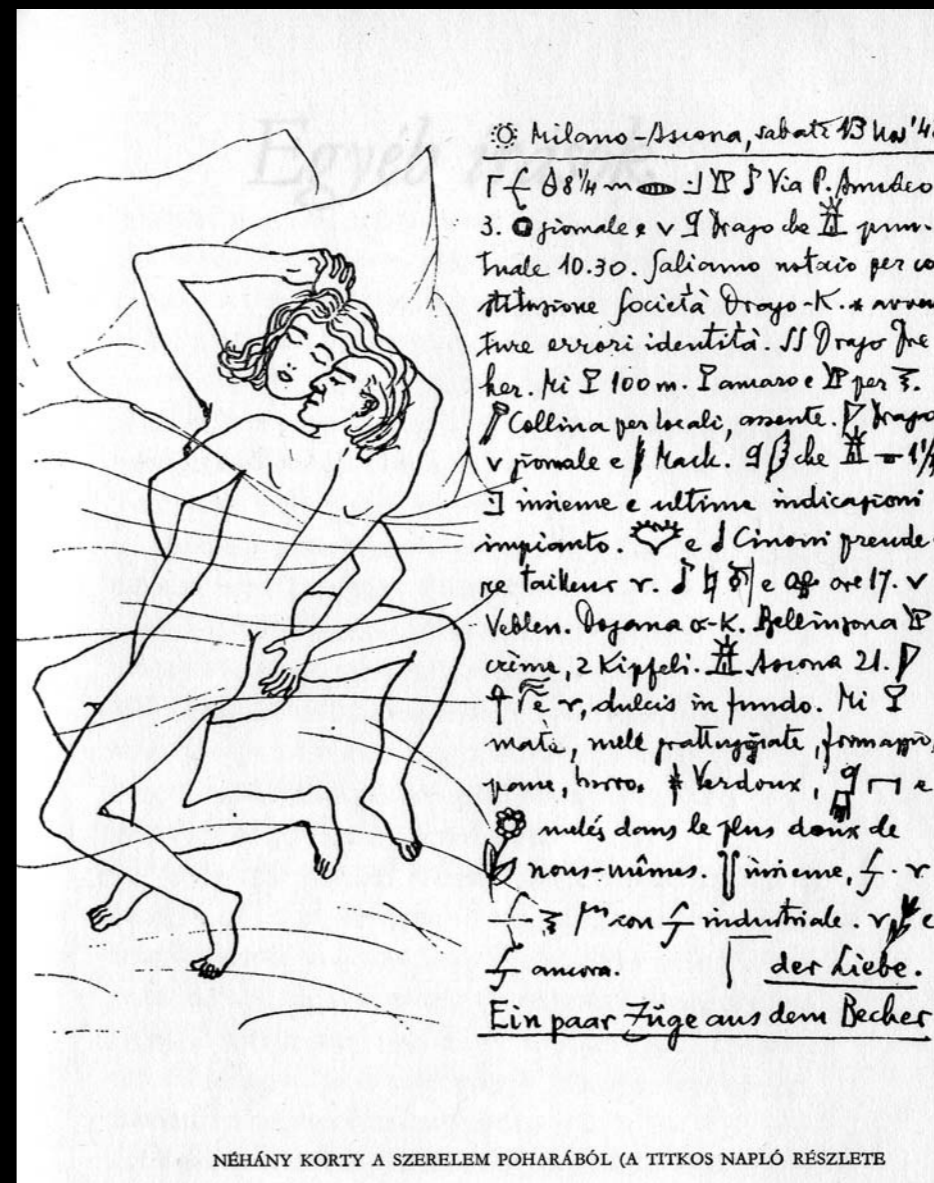 Egyéb írások
Milano-Ascona, sabato 13 Nov '4
8 1/4 Via P. Amedeo
3. giornale e v Drago che pun-
tuale 10.30. Saliamo notaio per co
stituzione Società Drago-K. * avven
ture errori identità. Drago Fre
her. Mi 100 m. amaro e per
Collina per locali, assente. Drago
v giornale e Mack. che 1 1/2
insieme e ultime indicazioni
impianto. e Cinoni prende-
re tailleur r. e ore 17. v
Veblen. Dogana K. Bellinzona
crème, 2 Kipfeli. Ascona 21.
e r, dulcis in fundo. Mi
mate, mele grattuggiate, formaggio,
pane, burro. * Verdoux, e
mêlés dans le plus doux de
nous-mêmes. insieme, r
con industriale. e
ancora. der Liebe.
Ein paar Züge aus dem Becher
NÉHÁNY KORTY A SZERELEM POHARÁBÓL (A TITKOS NAPLÓ RÉSZLETE